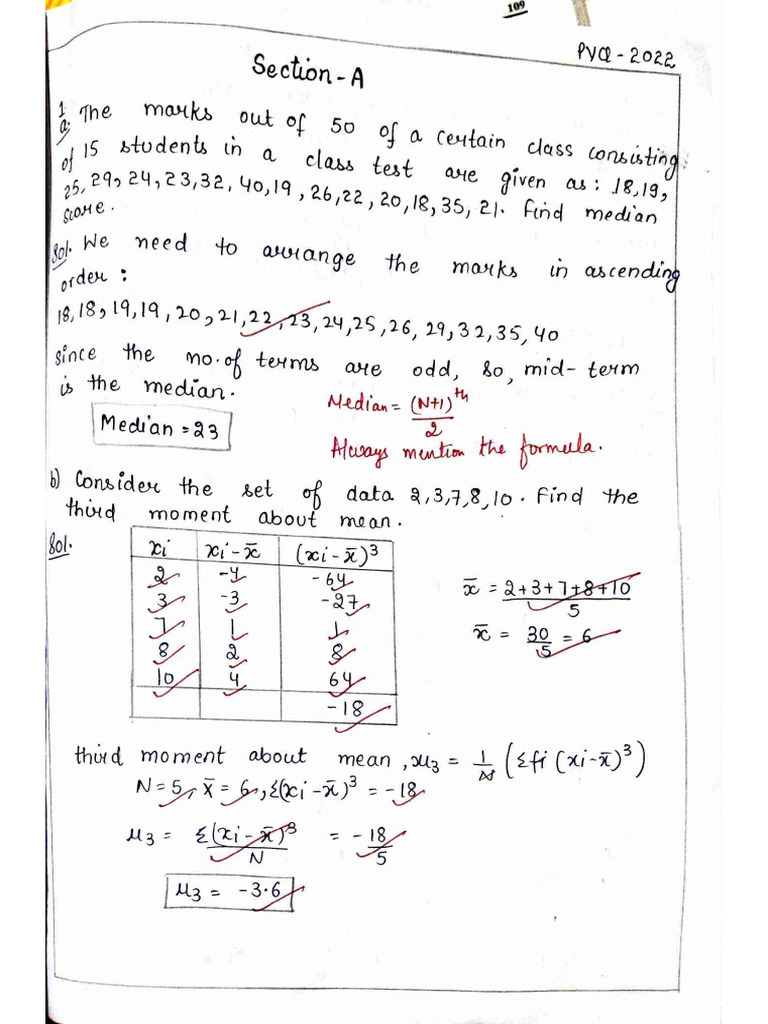 109
PYQ-2022
Section-A
1
a. The marks out of 50 of a certain class consisting
of 15 students in a class test are given as: 18,19,
25,29,24,23,32,40,19,26,22,20,18,35,21. Find median
score.
Sol. We need to arrange the marks in ascending
order:
18,18,19,19,20,21,22,23,24,25,26,29,32,35,40
since the no. of terms are odd, so, mid-term
is the median.
Median = (N+1)^th
2
Median = 23
Always mention the formula.
b) Consider the set of data 2,3,7,8,10. Find the
third moment about mean.
Sol.
xi xi-x̄ (xi-x̄)³
2 -4 -64
3 -3 -27
7 1 1
8 2 8
10 4 64
-18
x̄ = 2+3+7+8+10
5
x̄ = 30/5 = 6
third moment about mean, μ3 = 1/N (Σfi (xi-x̄)³)
N=5, x̄=6, Σ(xi-x̄)³ = -18
μ3 = Σ(xi-x̄)³/N = -18/5
μ3 = -3.6